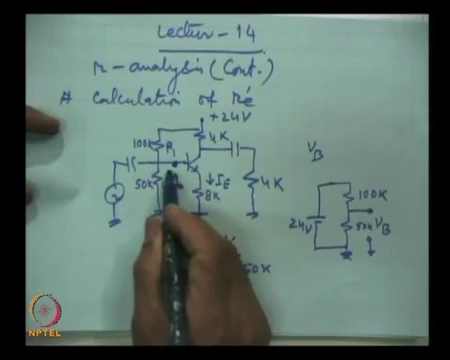 Lectur-14
r-analysis (Cont.)
# Calculation of ré
+24V
100K R1
4K
50K
↓IE
8K
4K
VB
24V
100K
50K VB
50K
NPTEL